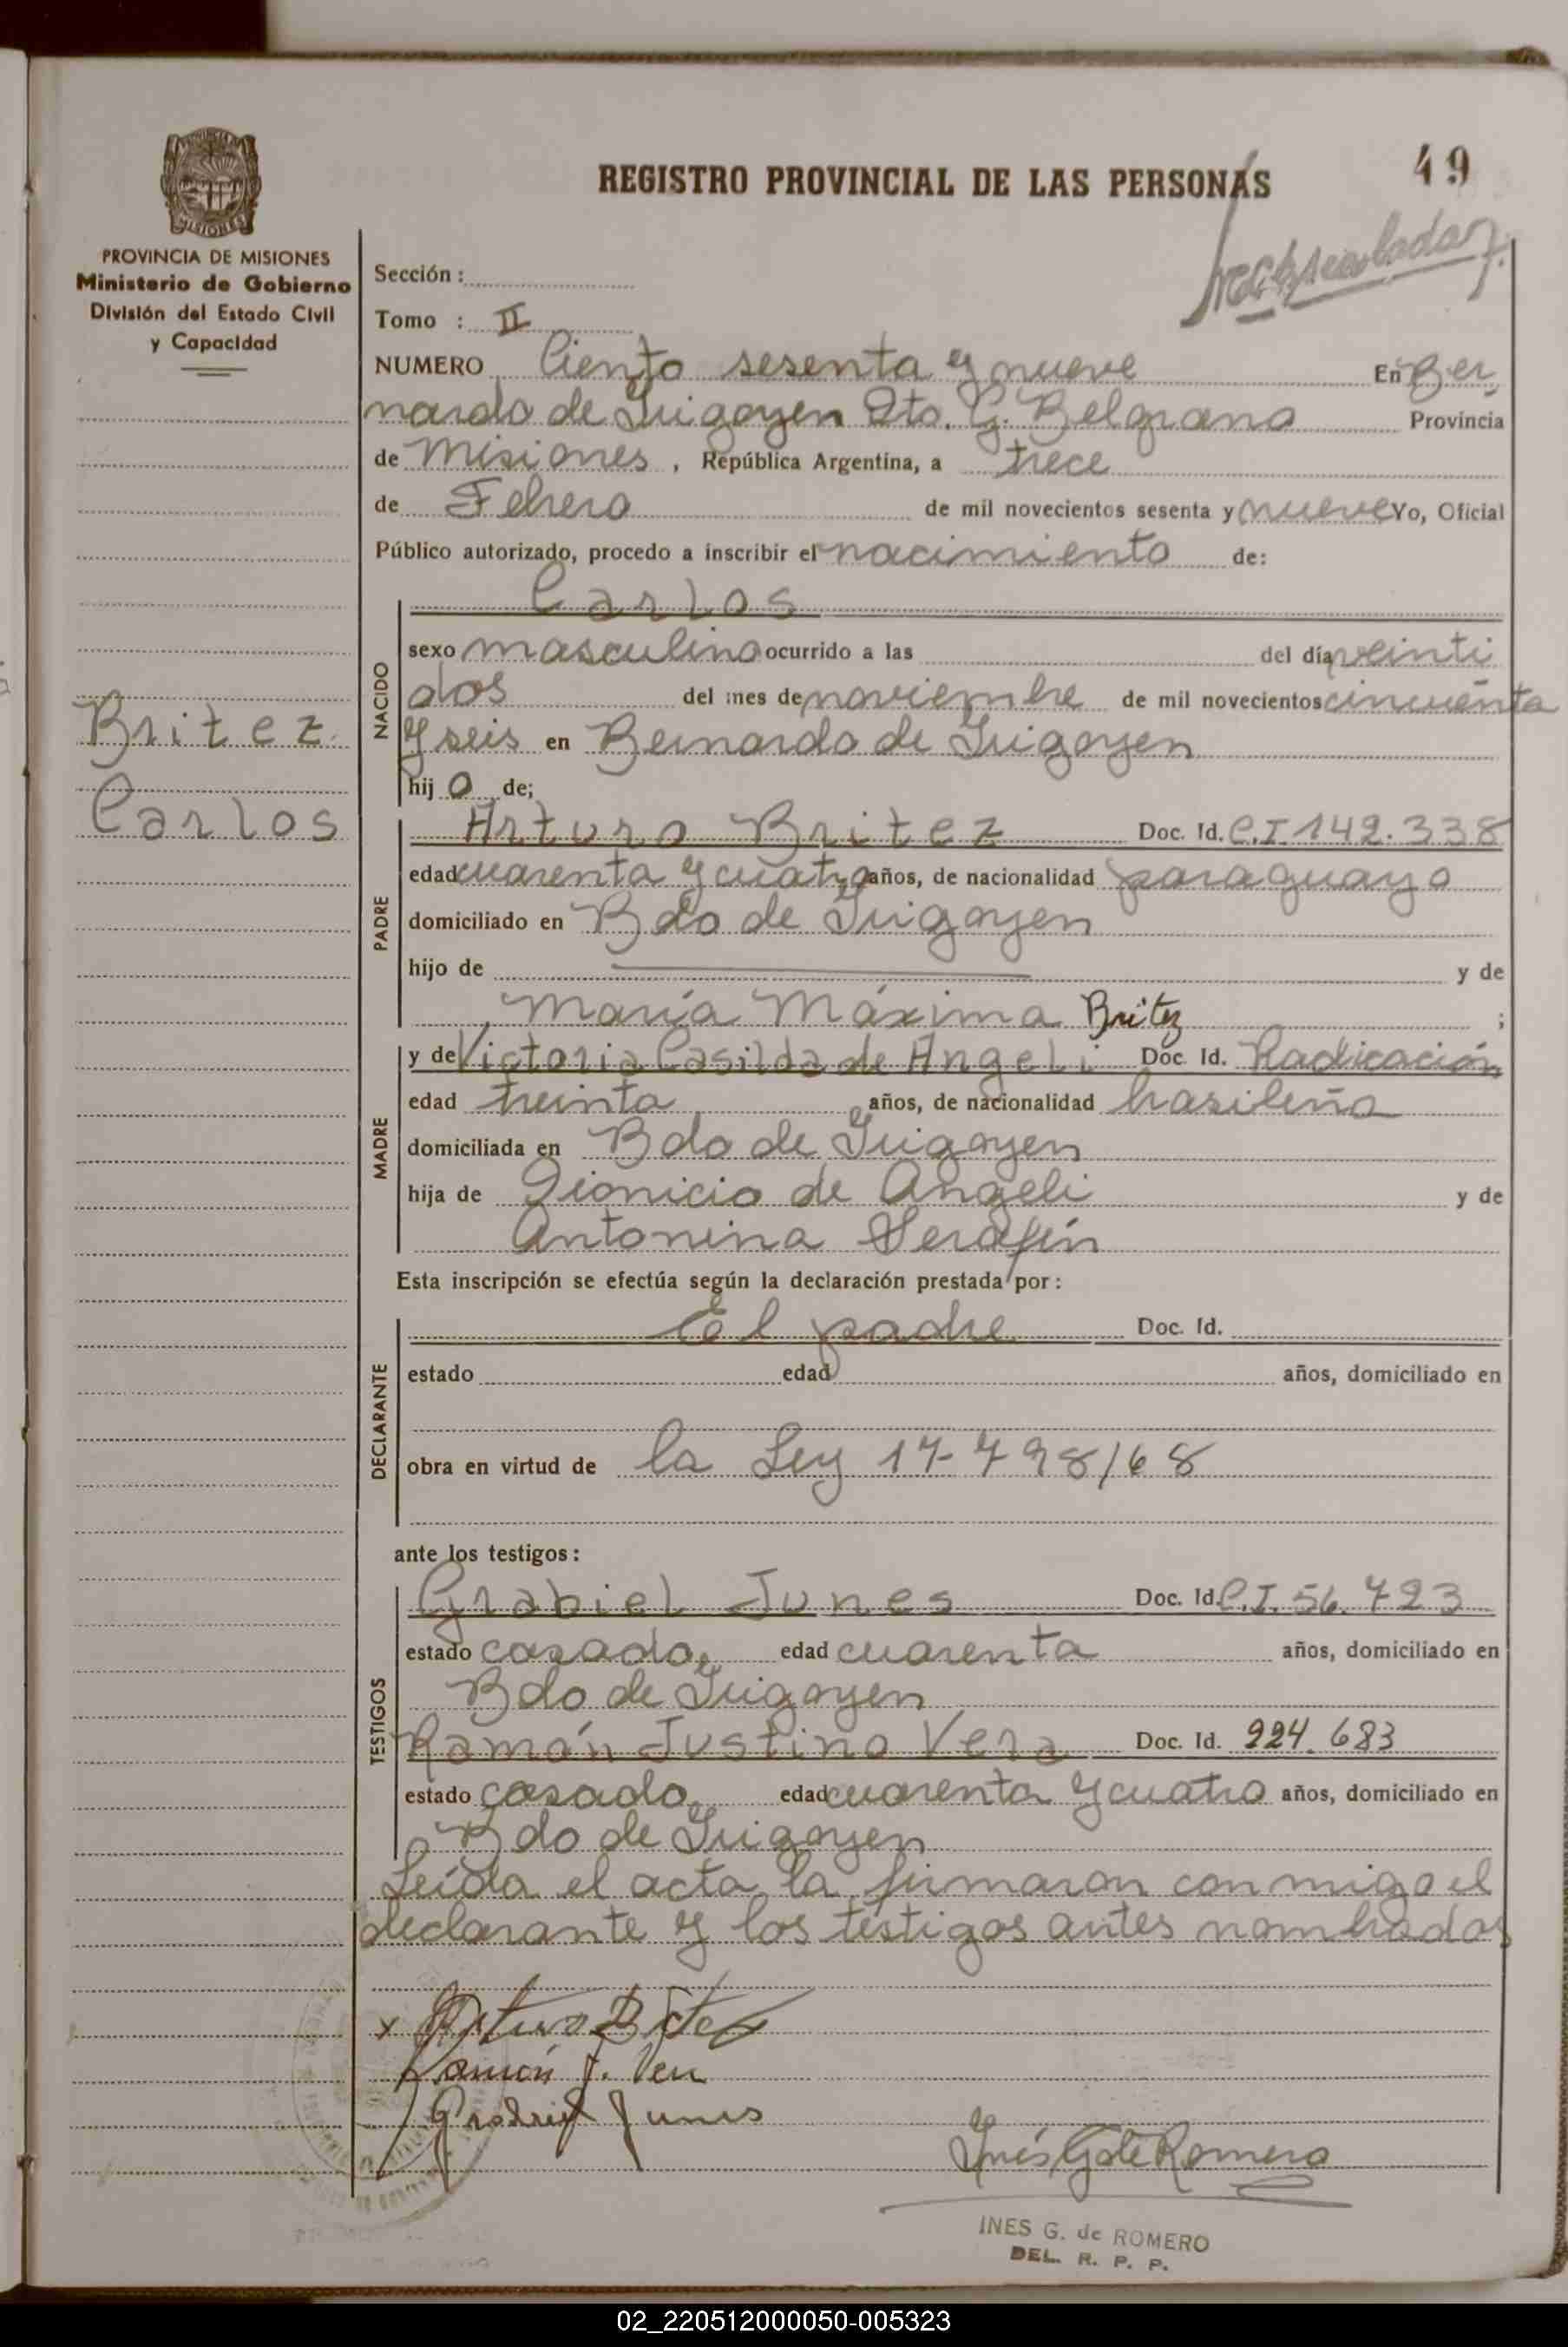 49
REGISTRO PROVINCIAL DE LAS PERSONAS
PROVINCIA DE MISIONES
Ministerio de Gobierno
División del Estado Civil
y Capacidad
Sección :
Tomo : II
NUMERO Ciento sesenta y nueve En Ber
nardo de Irigoyen Dto. G. Belgrano Provincia
de Misiones, República Argentina, a trece
de Febrero de mil novecientos sesenta y nueve Yo, Oficial
Público autorizado, procedo a inscribir el nacimiento de:
Carlos
NACIDO
sexo masculino ocurrido a las del día veinti
dos del mes de noviembre de mil novecientos cincuenta
y seis en Bernardo de Irigoyen
hijo de;
Britez
Carlos
PADRE
Arturo Britez Doc. Id. C.I 142.338
edad cuarenta y cuatro años, de nacionalidad paraguayo
domiciliado en Bdo de Irigoyen
hijo de y de
María Máxima Britez ;
MADRE
y de Victoria Casilda de Angeli Doc. Id. Radicación
edad treinta años, de nacionalidad brasileña
domiciliada en Bdo de Irigoyen
hija de Dionicio de Angeli y de
Antonina Serafín
Esta inscripción se efectúa según la declaración prestada por :
DECLARANTE
El padre Doc. Id.
estado edad años, domiciliado en
obra en virtud de la Ley 17-798/68
ante los testigos :
TESTIGOS
Grabiel Junes Doc. Id. C.I. 56.723
estado casado edad cuarenta años, domiciliado en
Bdo de Irigoyen
Ramón Justino Vera Doc. Id. 224.683
estado casado edad cuarenta y cuatro años, domiciliado en
Bdo de Irigoyen
Leída el acta la firmaron conmigo el
declarante y los testigos antes nombrados
x Arturo Britez
Ramón J. Vera
Grabriel Junes
Inés G de Romero
INES G. de ROMERO
DEL. R. P. P.
02_220512000050-005323